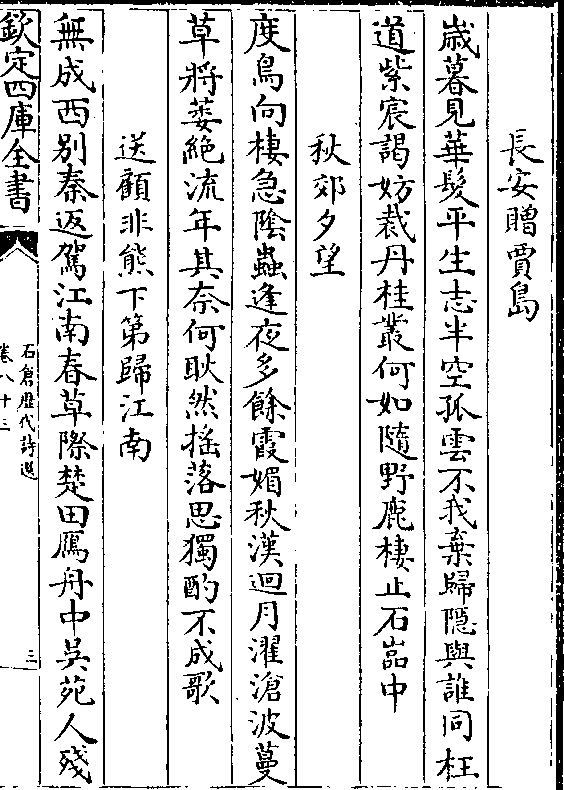 長安贈賈島
歳暮見華髮平生志半空孤雲不我棄歸隠與誰同枉
道紫宸謁妨裁丹桂叢何如隨野鹿棲止石嵓中
秋郊夕望
度鳥向棲急陰蟲逢夜多餘霞媚秋漢迥月濯滄波蔓
草將萎絶流年其奈何耿然搖落思獨酌不成歌
送顧非熊下第歸江南
無成西别秦返駕江南春草際楚田鴈舟中吳苑人殘
欽定四庫全書
石倉歴代詩選
卷八十三
三